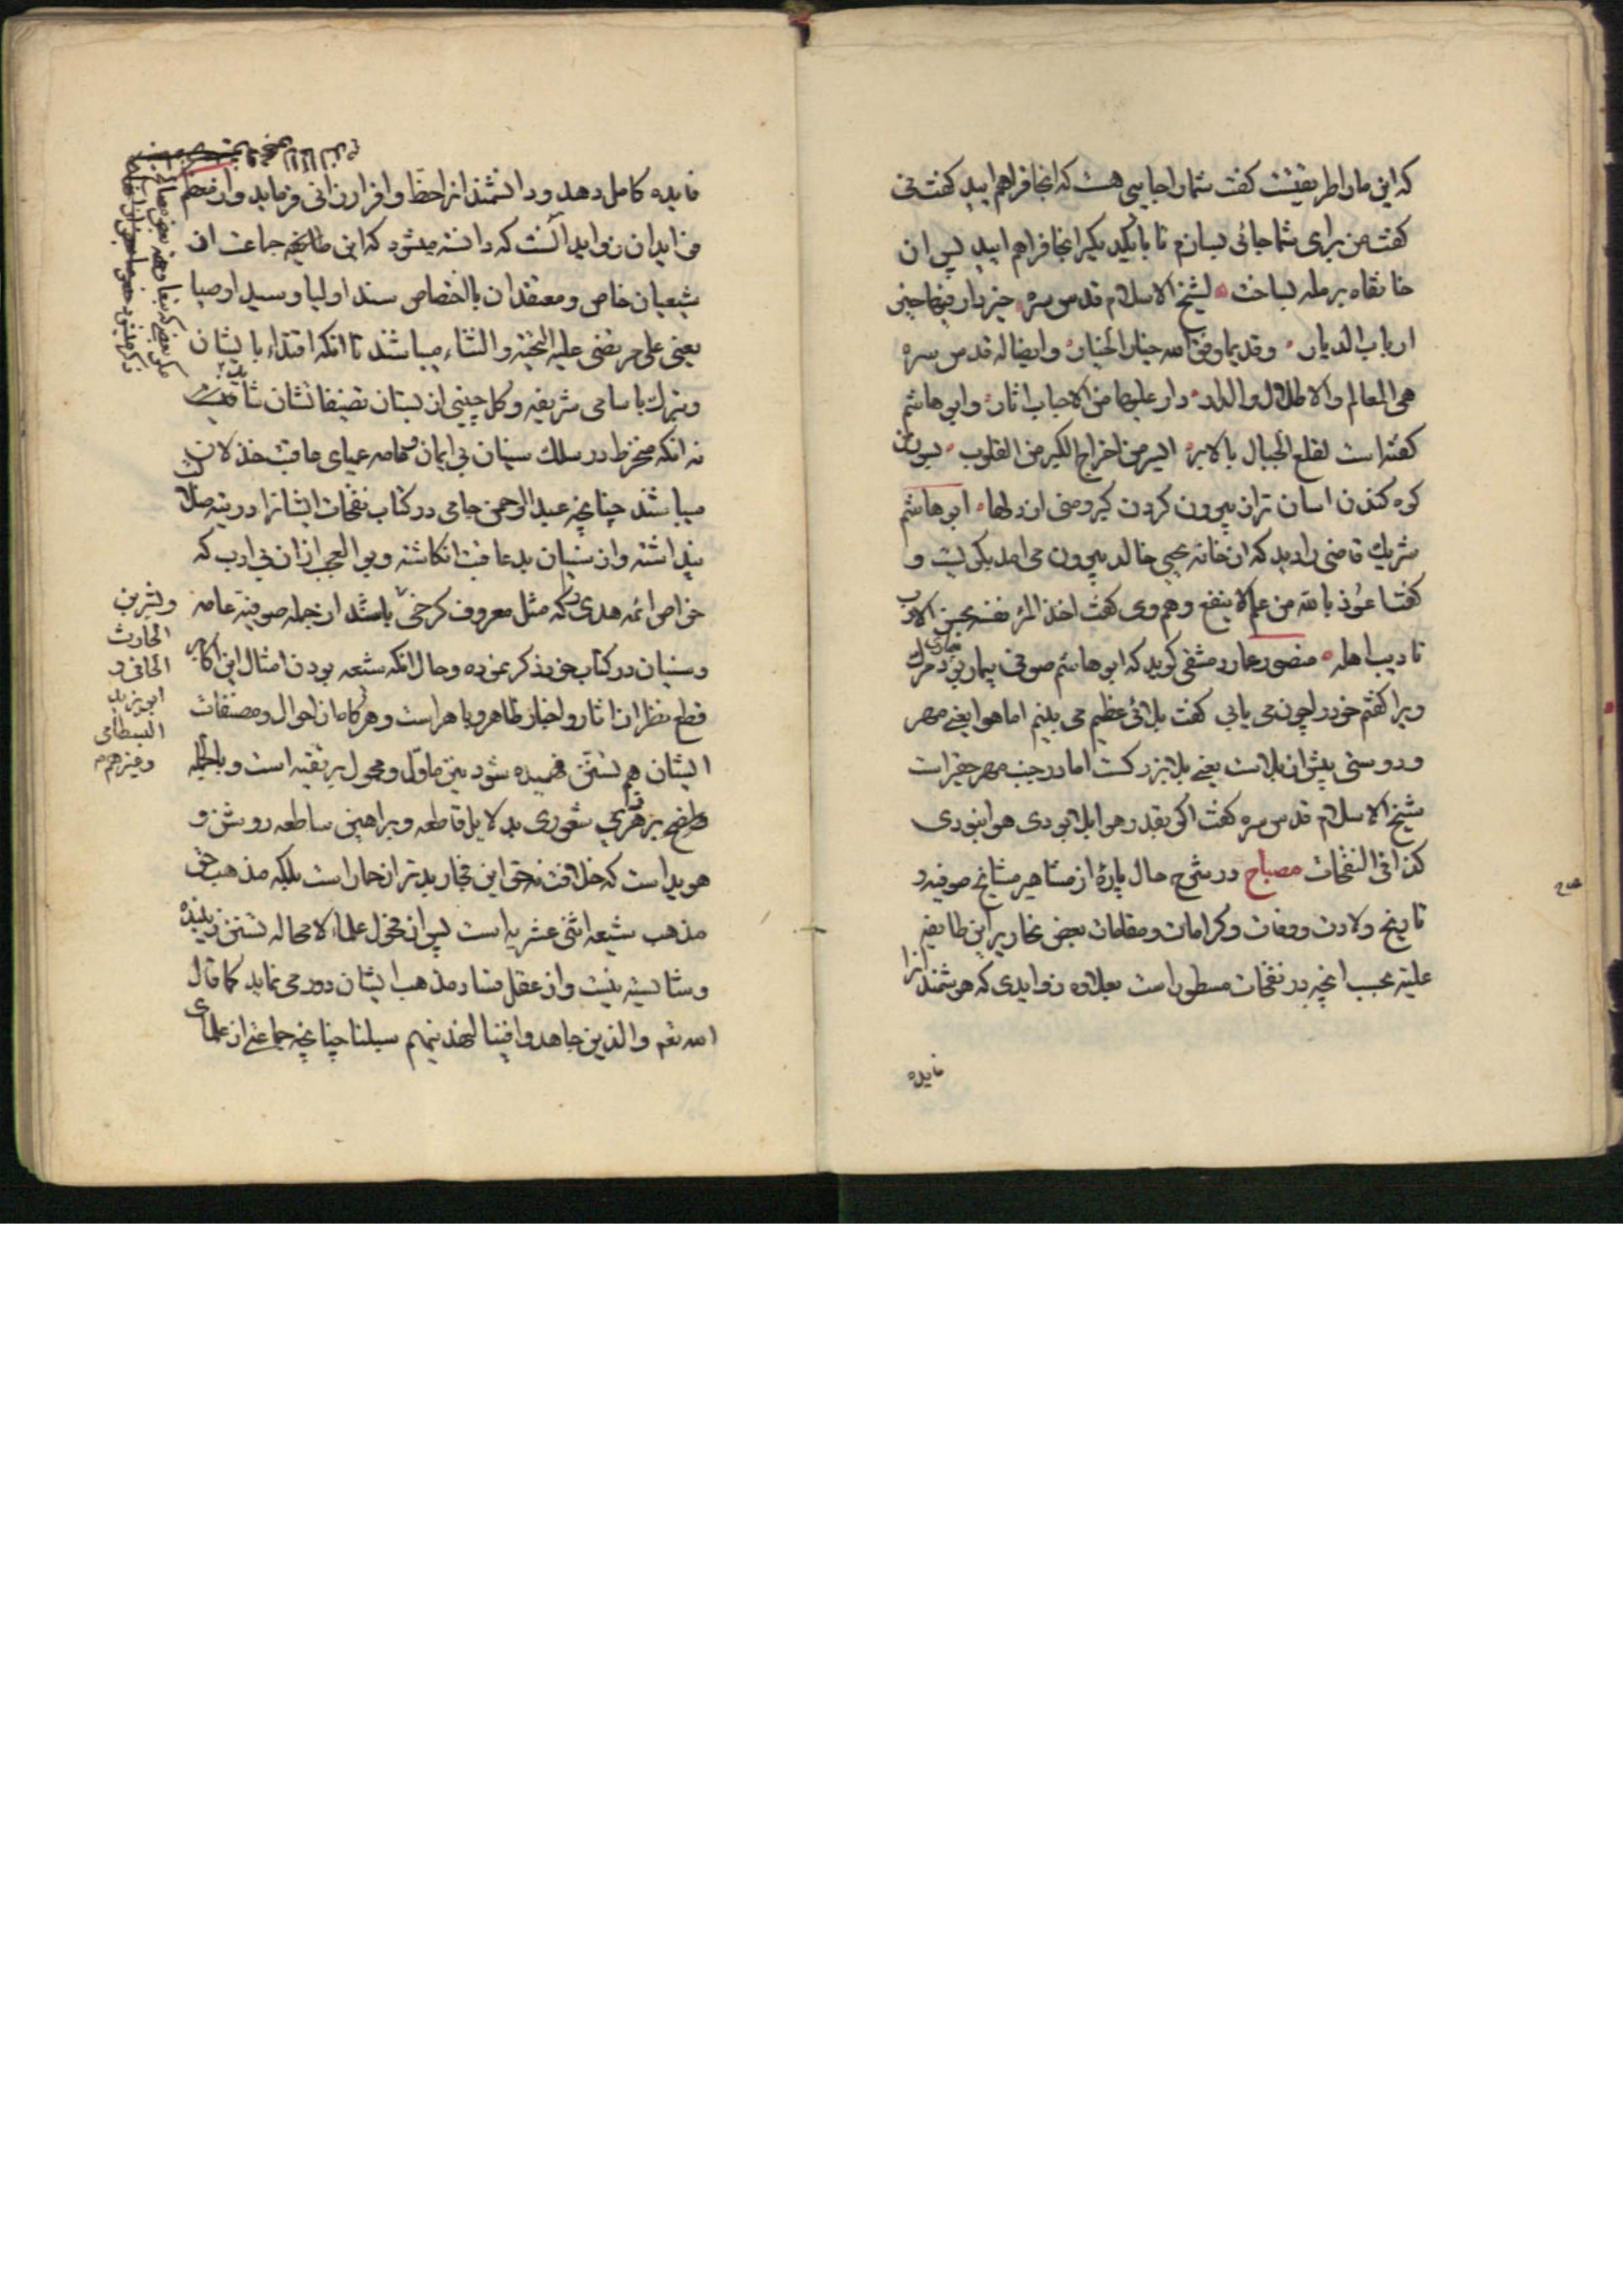 که این ما را طریقتست کفت شما را جایی هست که انجا فراهم ایید کفت نی
کفت من برای شما جائی بسازم تا با یکدیکر انجا فراهم ایید پس ان
خانقاه برمله بساخت لشیخ الاسلام قدس سره خیر دار فیها خیر
ارباب الدیار وقدیما وفق الله خیار الخیار وایضا له قدس سره
هی المعالم والاطلال والدار دار علیها من الاحباب اثار وابو هاشم
کفته است لقلع الجبال بالابر ایسر من اخراج الکبر من القلوب بسوزن
کوه کندن اسان تر از بیرون کردن کبر و منی از دلها ابو هاشم
شریک قاضی را دید که از خانه یحیی خالد بیرون می امد بکریست و
کفت اعوذ بالله من علم لا ینفع و هم وی کفت اخذ المرء نفسه بحسن الادب
تادیب اهله منصور عمار دمشقی کوید که ابو هاشم صوفی بیمار بود بیماری مرک
ویرا کفتم خود را چون می یابی کفت بلائی عظیم می بینم اما هوا یعنی مهر
و دوستی بیش از بلاست یعنی بلا بزرکست اما در جنب مهر حقیر است
شیخ الاسلام قدس سره کفت اکر بقدر هوا بلا بودی هوا نبودی
کذا فی النفحات مصباح در شرح حال پارهٔ از مشاهیر مشایخ صوفیه و
تاریخ ولادت و وفات و کرامات و مقامات بعض نحاریر این طایفه
علیه بحسب انچه در نفحات مسطور است بعلاوه زوایدی که هوشمند را
فایده
فایده کامل دهد و دانشمند را حظا وافر ارزانی فرماید و از معظم
فواید ان زواید آنست که دانسته میشود که این طایفه جماعت از
شیعیان خاص و معتقدان بااختصاص سند اولیا و سید اوصیا
یعنی علی مرتضی علیه التحیة والثناء میباشند تا انکه اقتداء بایشان
وتبرک باسامی شریفه و کل چینی از بستان تصنیفاتشان شاید
نه انکه منخرط در سلک سنیان بی ایمان و عامه عمیای عاقبت خذلان
میباشند چنانچه عبد الرحمن جامی در کتاب نفحات ایشانرا در تیه ضلالت
پنداشته و از سنیان بدعاقبت انکاشته و بوالعجب از ان بی ادب که
خواص ائمه هدی را که مثل معروف کرخی باشند از جمله صوفیه عامه
وسنیان در کتاب خود ذکر نموده و حال انکه شیعه بودن امثال این اکابر
قطع نظر از اثار و اخبار ظاهر و باهر است و هرکاه از احوال و مصنفات
ایشان هم تسنن فهمیده شود یقین ماوّل و محمول بر تقیه است و بالجمله
شعوری بدلایل قاطعه و براهین ساطعه روشن و
هویداست که خلافت نه حق این تجار بدتر از حمار است بلکه مذهب حق
مذهب شیعه اثنی عشریه است پس از فحول علماء لامحاله تسنن زیبنده
و شایسته نیست و از عقل فساد مذهب ایشان دور می نماید کما قال
الله تعم والذین جاهدوا فینا لنهدینهم سبلنا چنانچه جماعتی از علمای
وبشر بن
الحارث
الحافی و
ابو یزید
البسطامی
وغیرهم